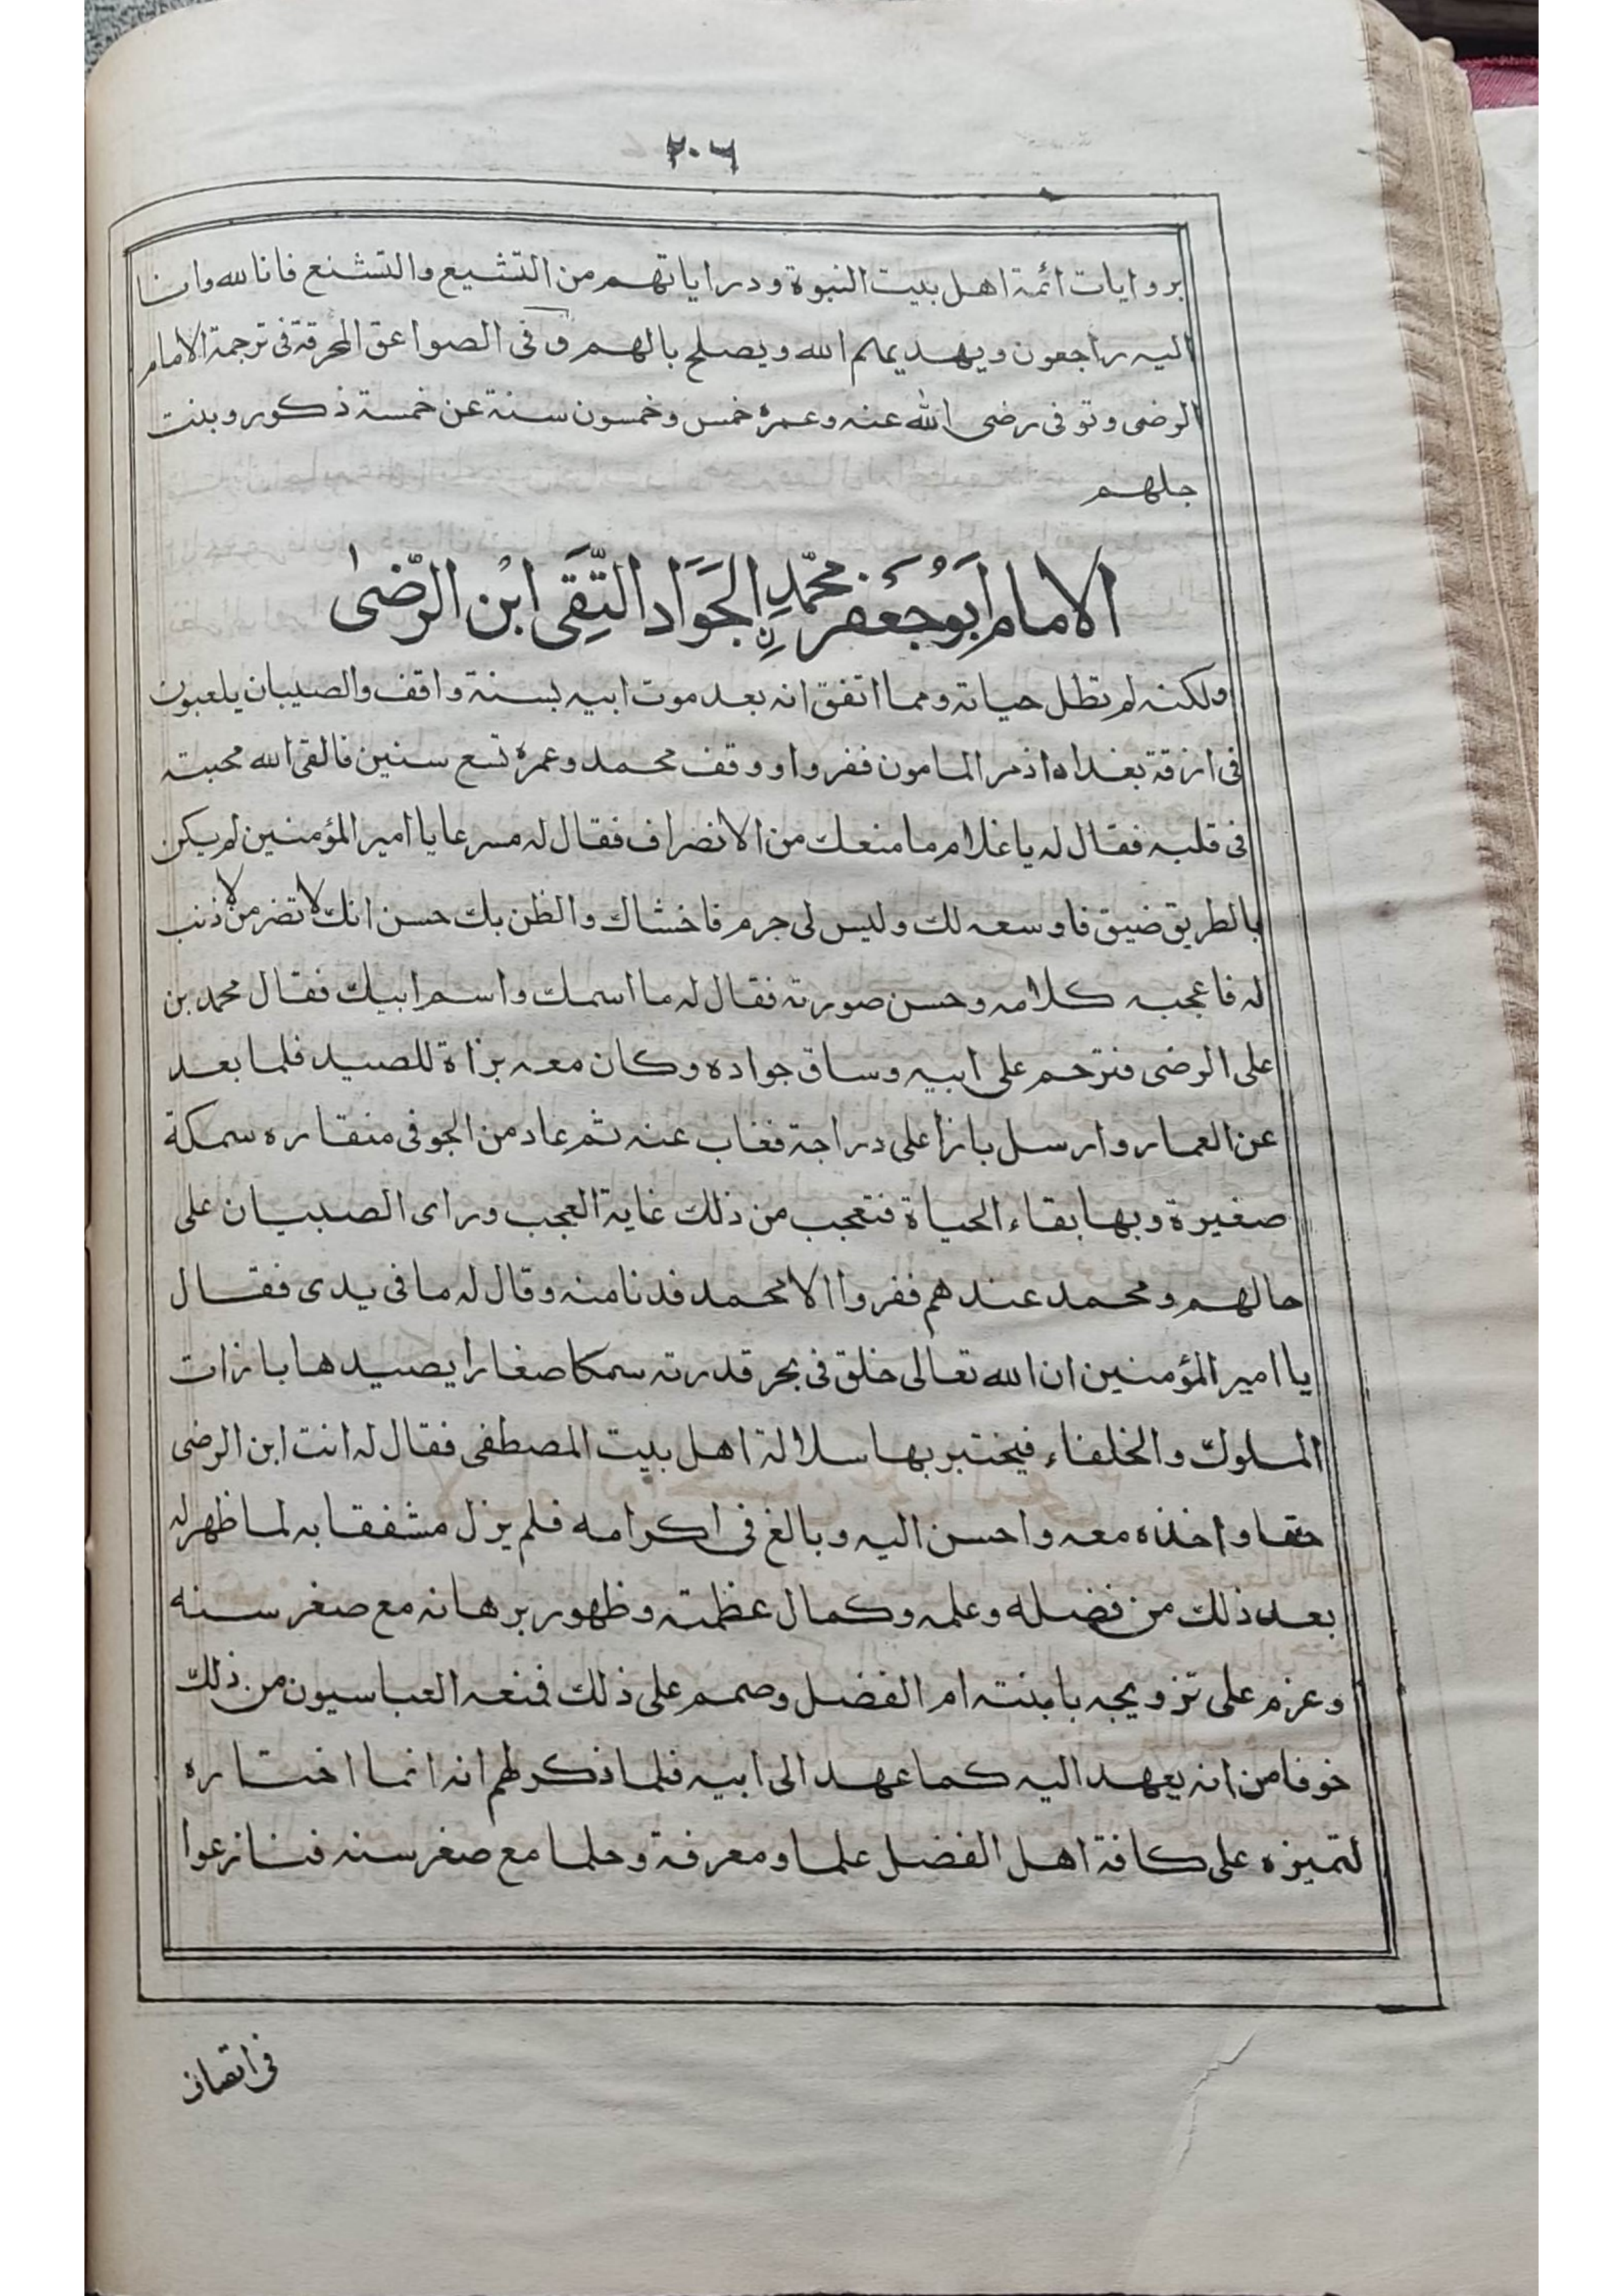 ٢٠٦
بروايات ائمة اهل بيت النبوة ودراياتهم من التشيع والتشنع فانا لله وانا
اليه راجعون ويهديهم الله ويصلح بالهم وفى الصواعق المحرقة فى ترجمة الامام
الرضى وتوفى رضى الله عنه وعمره خمس وخمسون سنة عن خمسة ذكور وبنت
جلهم
الامام ابو جعفر محمد ن الجواد التقى ابن الرضى
ولكنه لم تطل حياته ومما اتفق انه بعد موت ابيه بسنة واقف والصبيان يلعبون
فى ازقة بغداد اذ مر المامون ففروا ووقف محمد وعمره تسع سنين فالقى الله محبته
فى قلبه فقال له يا غلام ما منعك من الانصراف فقال له مسرعا يا امير المؤمنين لم يكن
بالطريق ضيق فاوسعه لك وليس لى جرم فاخشاك والظن بك حسن انك لا تضر من لا ذنب
له فاعجبه كلامه وحسن صورته فقال له ما اسمك واسم ابيك فقال محمد بن
على الرضى فترحم على ابيه وساق جواده وكان معه بزاة للصيد فلما بعد
عن العمار وارسل بازا على دراجة فغاب عنه ثم عاد من الجو فى منقاره سمكة
صغيرة وبها بقاء الحياة فتعجب من ذلك غاية العجب وراى الصبيان على
حالهم ومحمد عندهم ففروا الا محمد فدنا منه وقال له ما فى يدى فقال
يا امير المؤمنين ان الله تعالى خلق فى بحر قدرته سمكا صغارا يصيدها بازات
الملوك والخلفاء فيختبر بها سلالة اهل بيت المصطفى فقال له انت ابن الرضى
حقا واخذه معه واحسن اليه وبالغ فى اكرامه فلم يزل مشفقا به لما ظهر له
بعد ذلك من فضله وعلمه وكمال عظمته وظهور برهانه مع صغر سنه
وعزم على تزويجه بابنته ام الفضل وصمم على ذلك فمنعه العباسيون من ذلك
خوفا من انه يعهد اليه كما عهد الى ابيه فلما ذكر لهم انه انما اختاره
لتميزه على كافة اهل الفضل علما ومعرفة وحلما مع صغر سنه فنازعوا
فى اتصاف